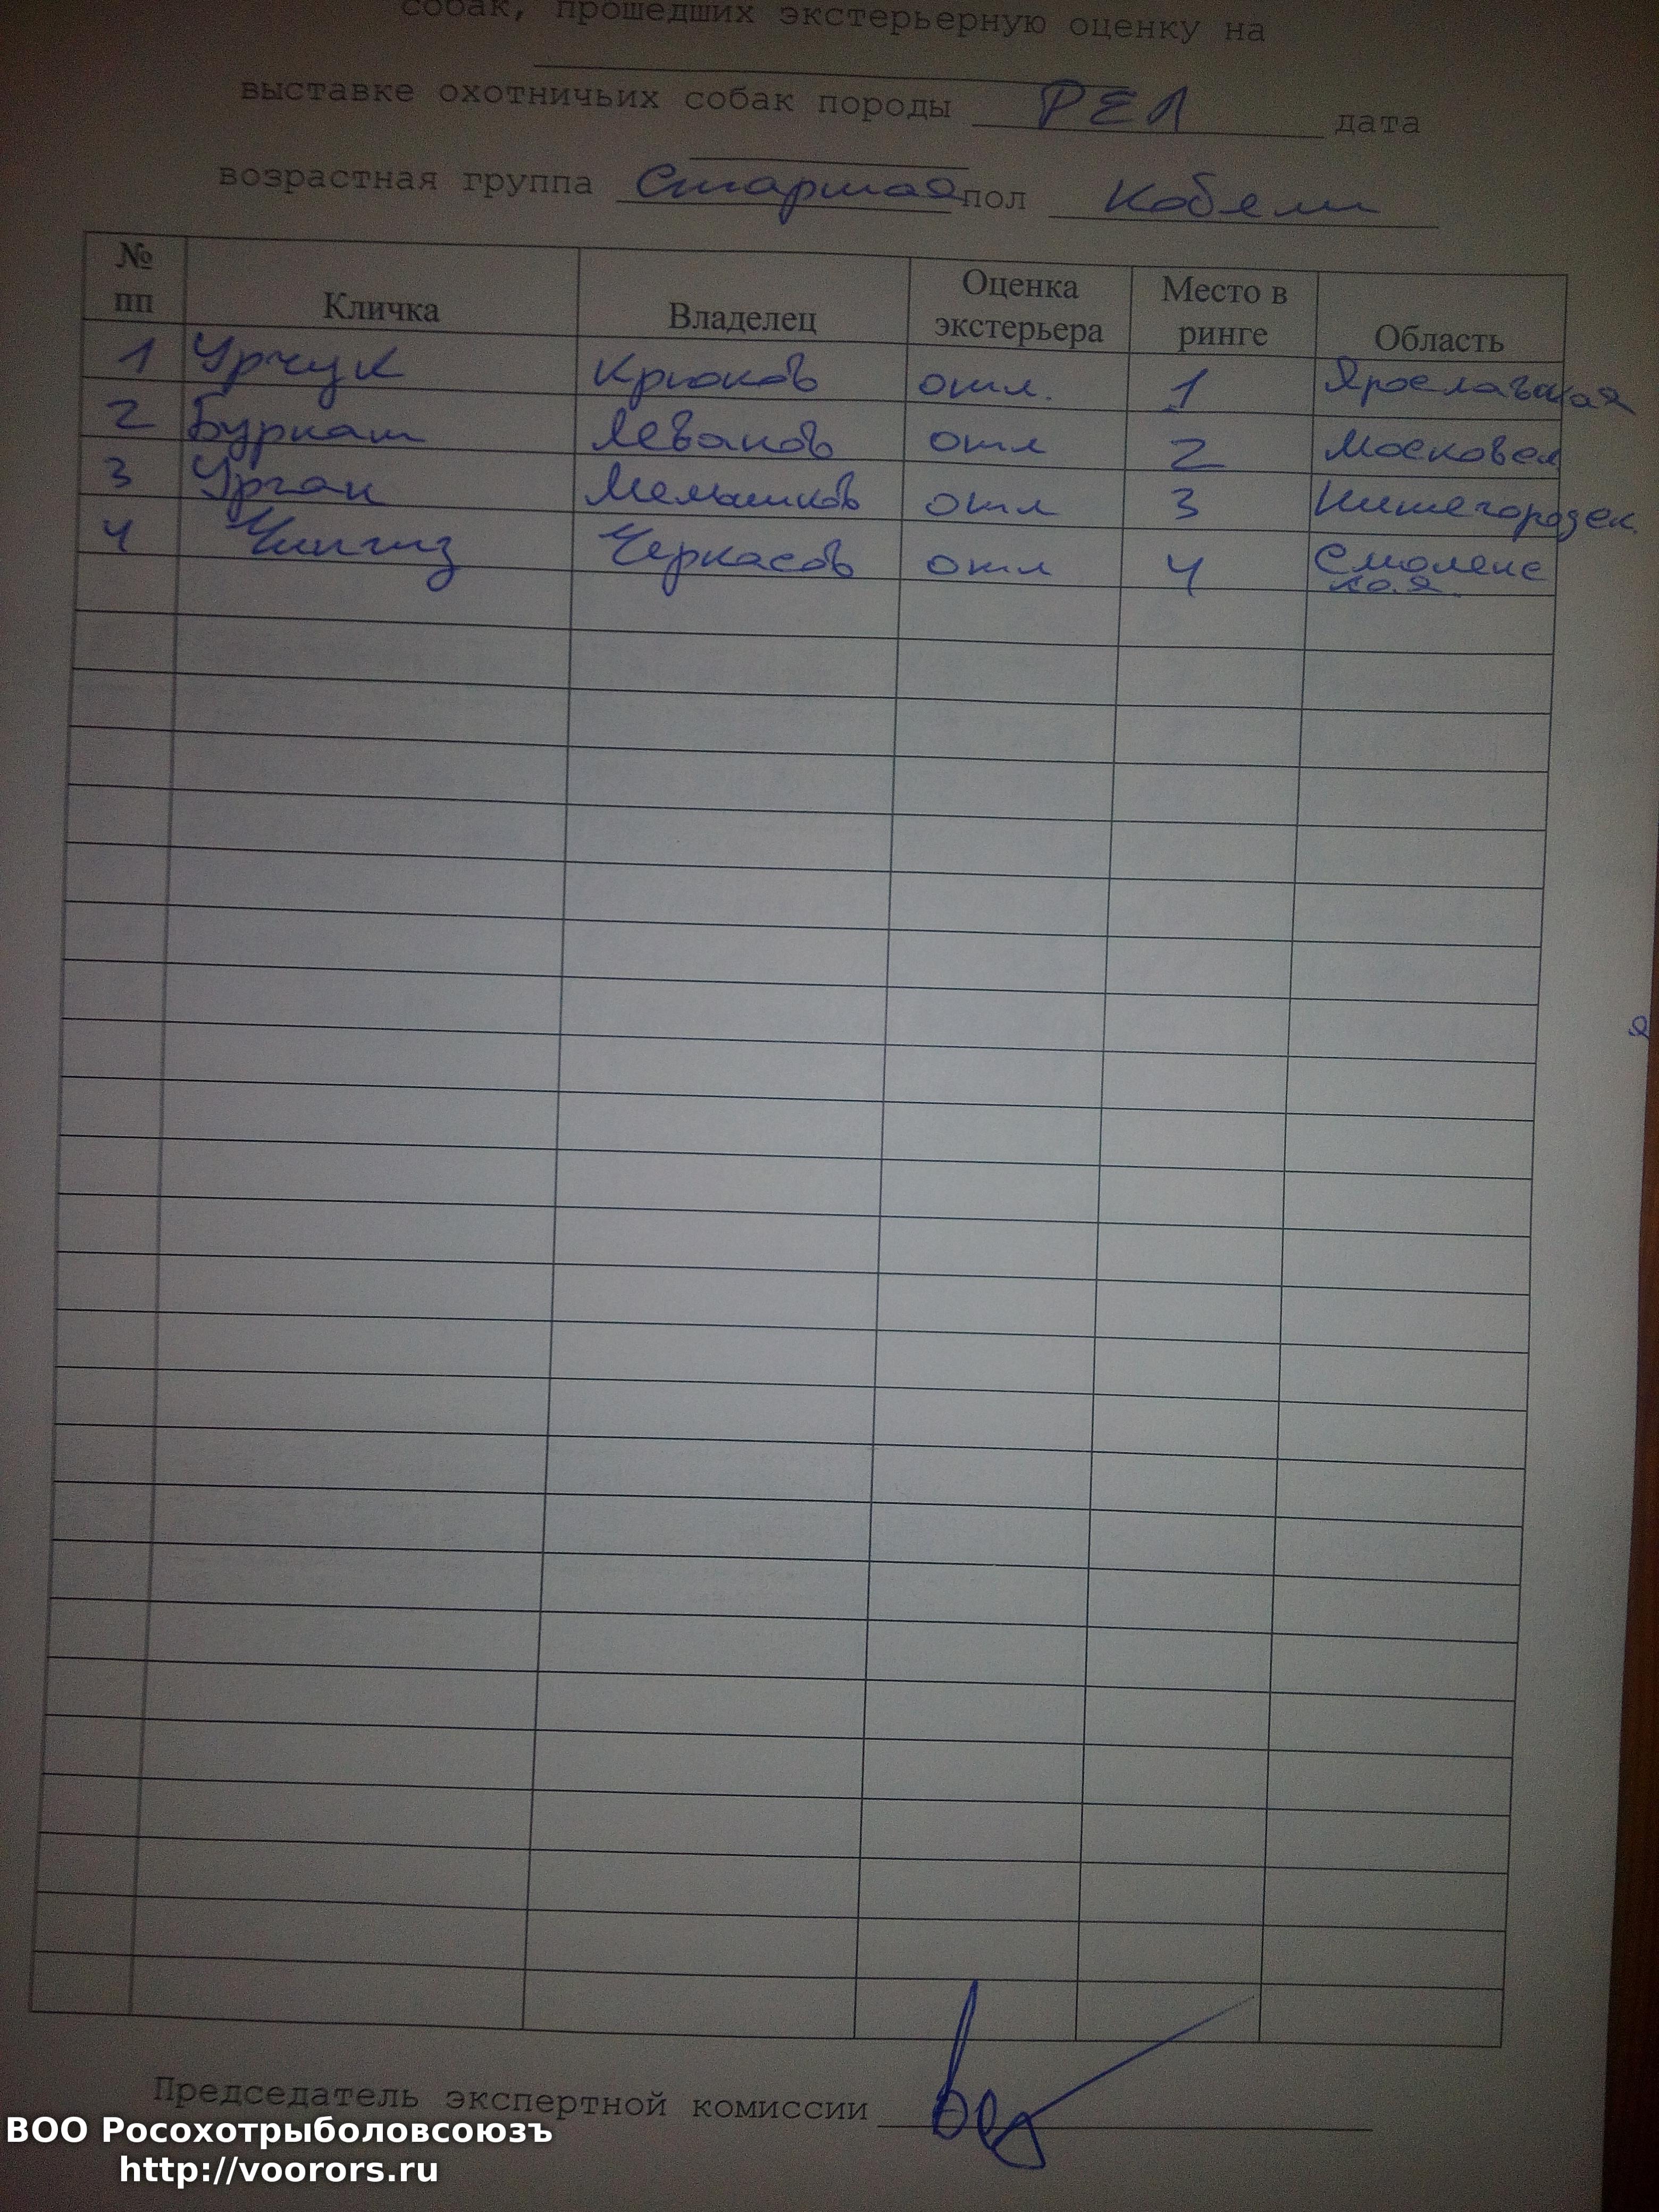 собак, прошедших экстерьерную оценку на
выставке охотничьих собак породы РЕЛ дата
возрастная группа Старшая пол Кобели
№ пп Кличка Владелец Оценка экстерьера Место в ринге Область
1 Урчук Крюков отл. 1 Ярославская
2 Буркаш Леванов отл 2 Московск
3 Урган Меньшиков отл 3 Нижегородск
4 Чингиз Черкасов отл 4 Смоленс
кая
я
Председатель экспертной комиссии
ВОО Росохотрыболовсоюзъ
http://voorors.ru